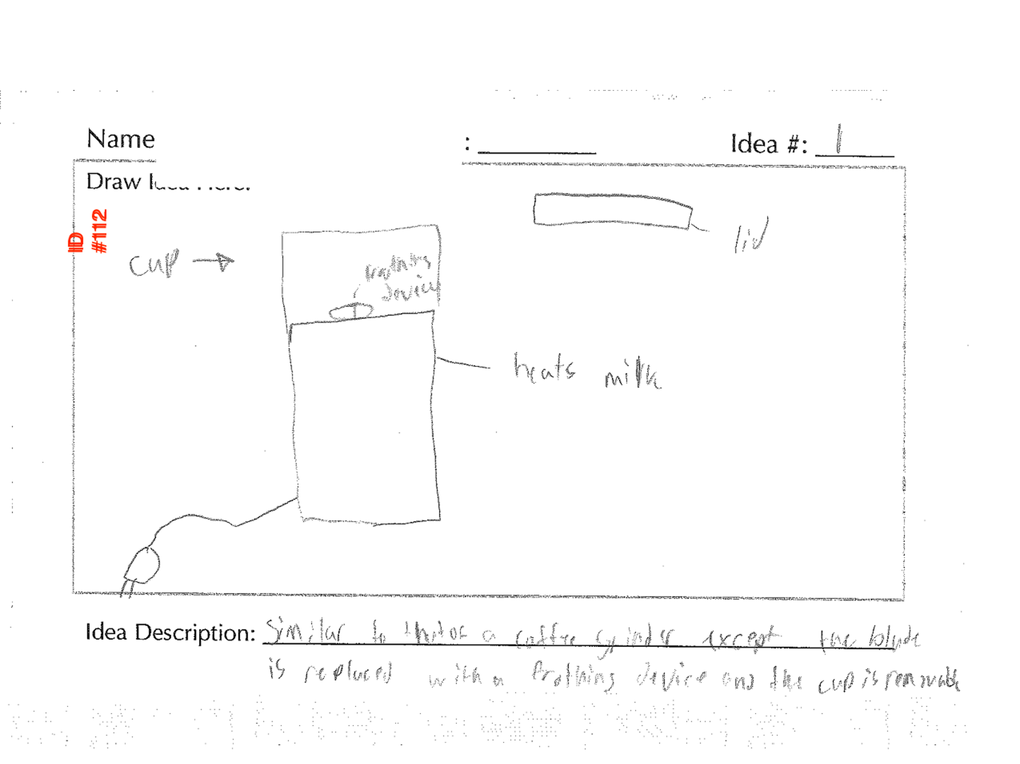 Name : Idea #: 1
Draw Idea Here:
ID #112
lid
cup →
frothing device
heats milk
Idea Description: Similar to that of a coffee grinder except the blade
is replaced with a frothing device and the cup is removable